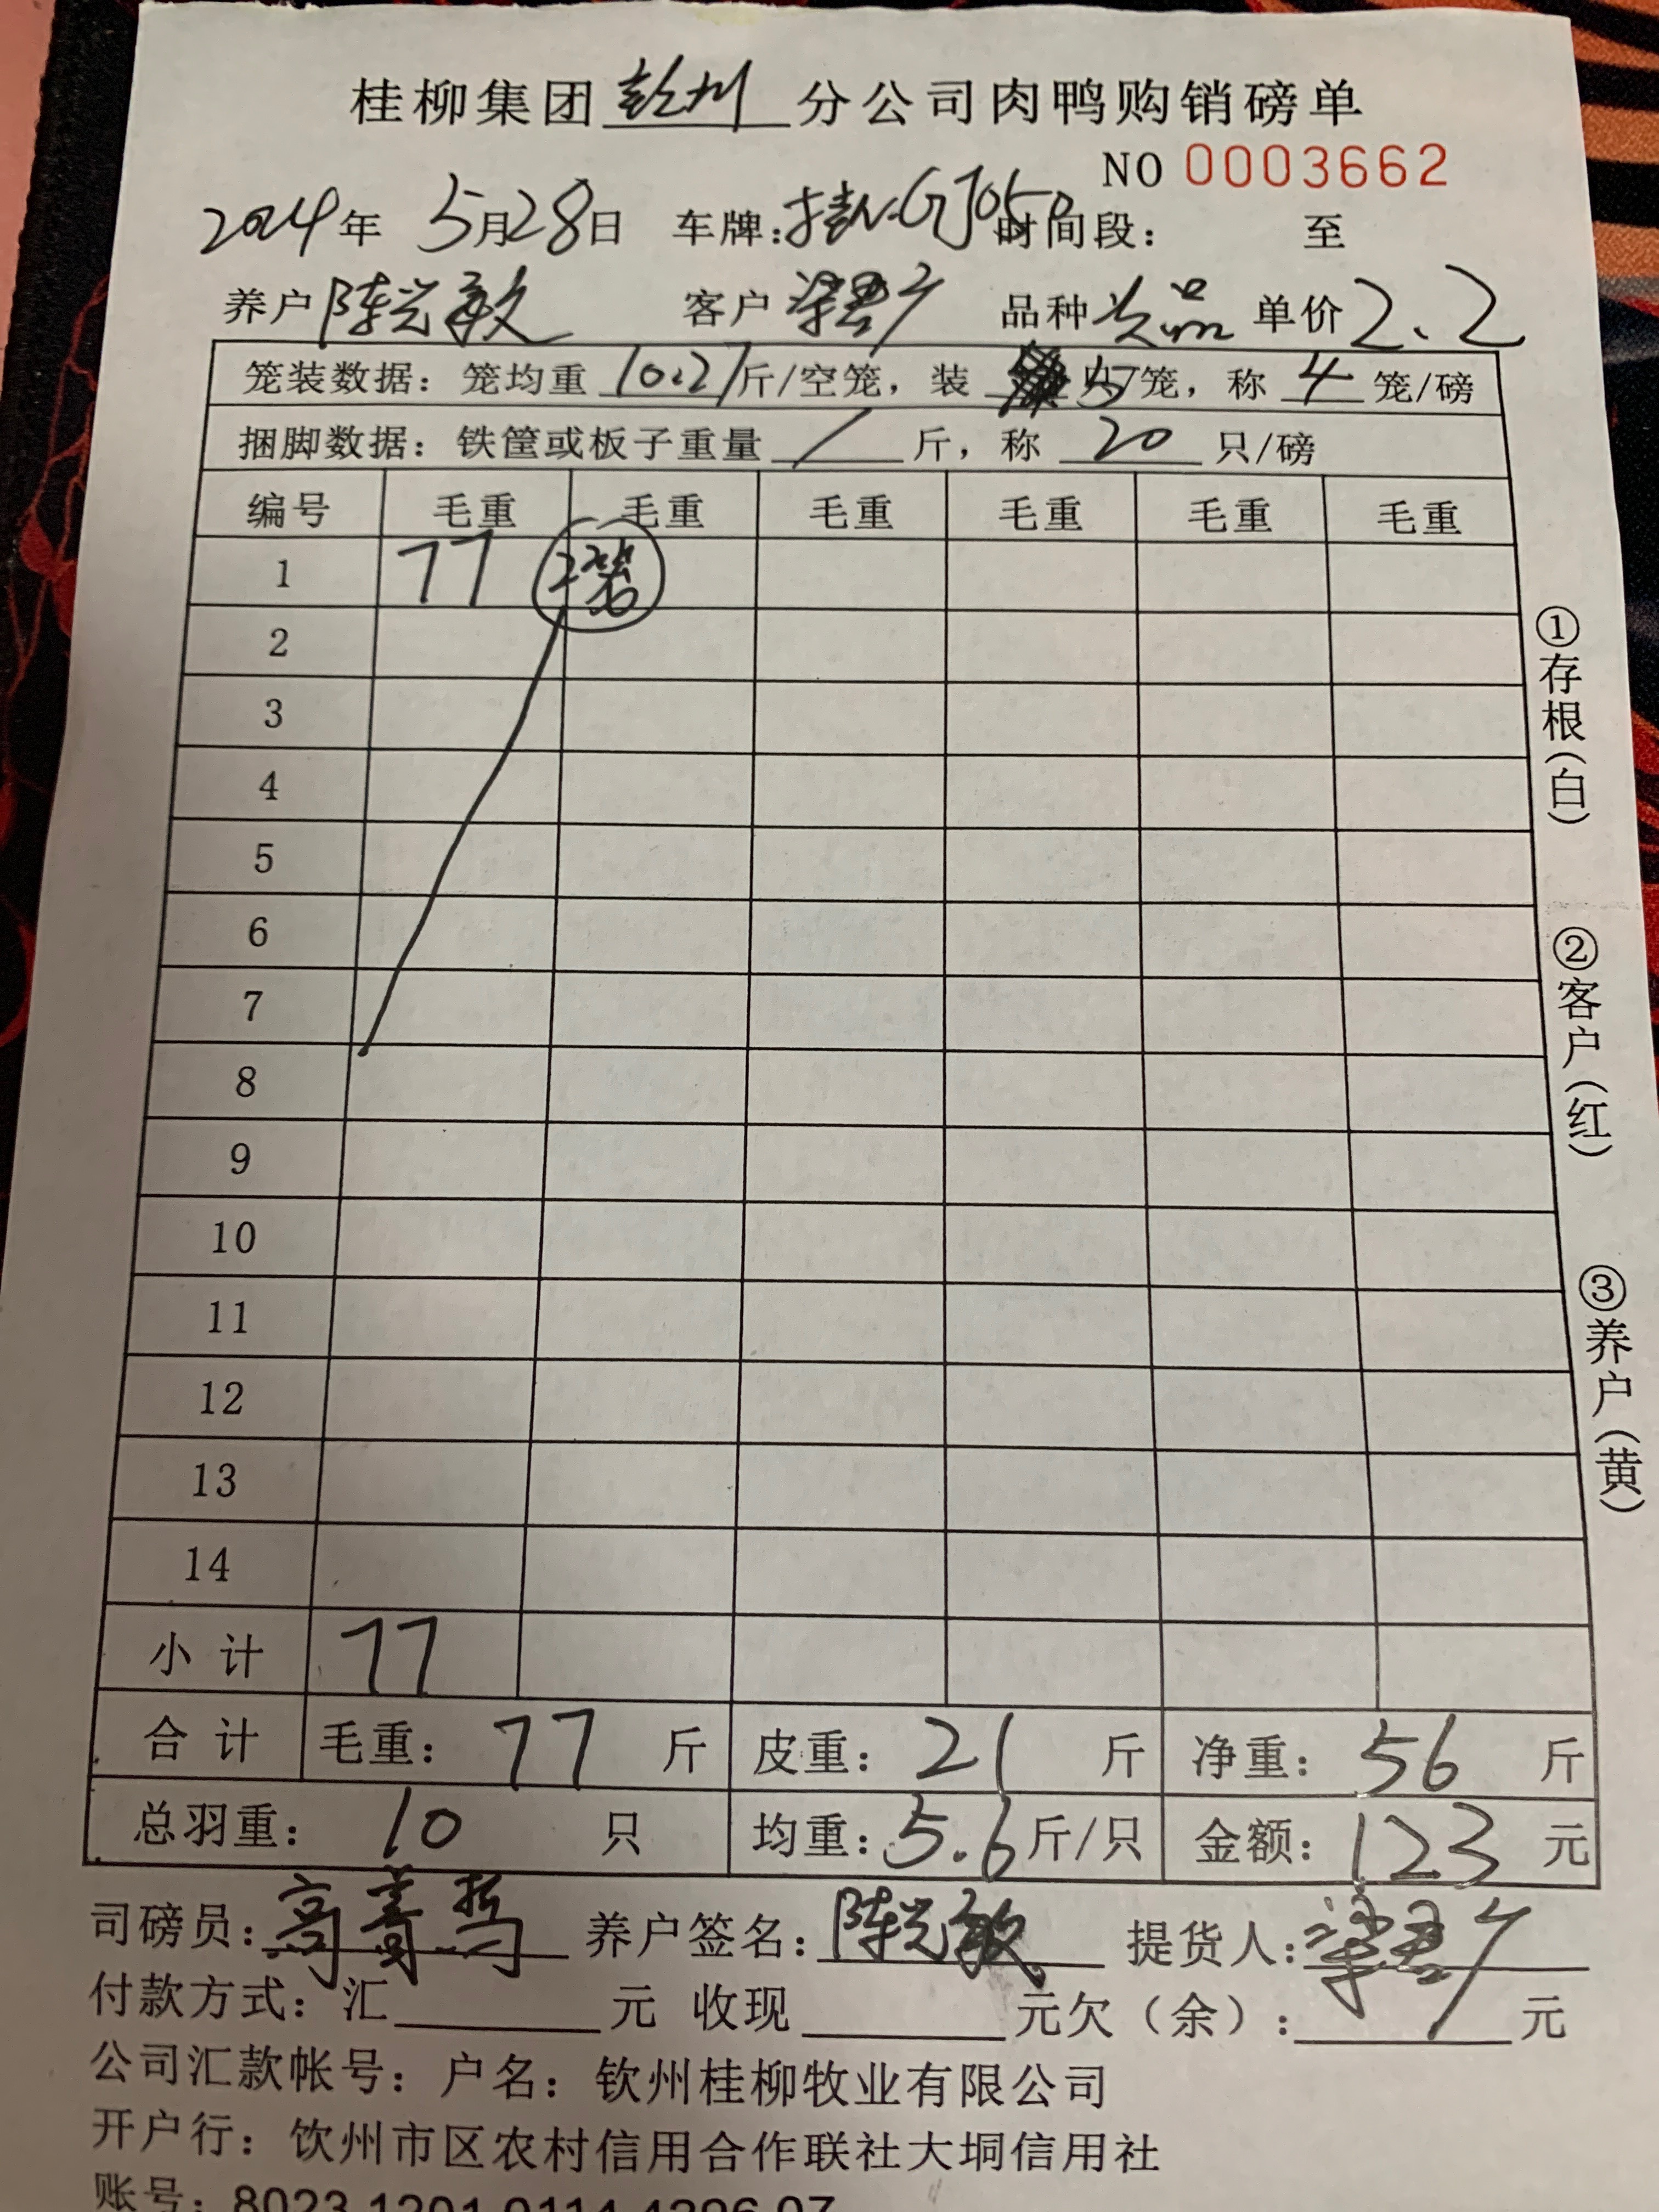 桂柳集团钦州分公司肉鸭购销磅单
NO 0003662
2024年 5月28日 车牌:桂N.GJ050 时间段: 至
养户 陈光敏 客户 品种 次品 单价 2.2
笼装数据: 笼均重 10.27 斤/空笼, 装 5 只/笼, 称 4 笼/磅
捆脚数据: 铁筐或板子重量 / 斤, 称 20 只/磅
编号 毛重 毛重 毛重 毛重 毛重 毛重
1 77 2笼
2
3
4
5
6
7
8
9
10
11
12
13
14
小计 77
合计 毛重: 77 斤 皮重: 21 斤 净重: 56 斤
总羽重: 10 只 均重: 5.6 斤/只 金额: 123 元
司磅员: 养户签名: 陈光敏 提货人:
付款方式: 汇 元 收现 元欠(余): 元
公司汇款帐号: 户名: 钦州桂柳牧业有限公司
开户行: 钦州市区农村信用合作联社大垌信用社
账号: 8023 1201 0114 4296 07
①存根(白)
②客户(红)
③养户(黄)